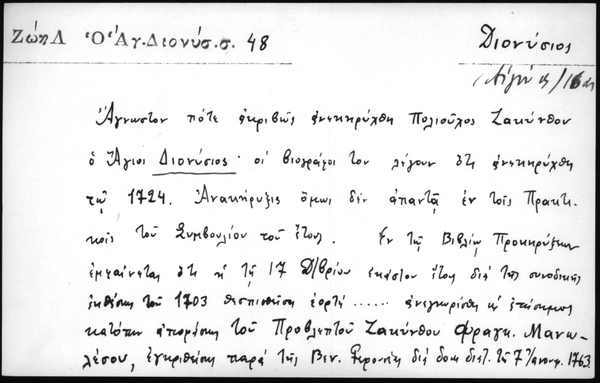 Ζώη Λ Ὁ Ἅγ. Διονύσ. σ. 48
Διονύσιος
Αἰγίνης
Ἄγνωστον πότε ἀκριβῶς ἀνεκηρύχθη Πολιοῦχος Ζακύνθου
ὁ Ἅγιος Διονύσιος· οἱ βιογράφοι του λέγουν ὅτι ἀνεκηρύχθη
τῷ 1724. Ἀνακήρυξις ὅμως δὲν ἀπαντᾷ ἐν τοῖς Πρακτι-
κοῖς τοῦ Συμβουλίου τοῦ ἔτους. Ἐν τῷ Βιβλίῳ Προκηρύξεων
ἐμφαίνεται ὅτι ἡ τῇ 17 Δ/βρίου ἑκάστου ἔτους διὰ τῆς συνοδικῆς
ἐκθέσεως τοῦ 1703 θεσπισθεῖσα ἑορτὴ ...... ἀνεγνωρίσθη ὡς ἐπίσημος
κατόπιν ἀποφάσεως τοῦ Προβλεπτοῦ Ζακύνθου Φραγκ. Μανω-
λέσου, ἐγκριθείσης παρὰ τῆς Βεν. Γερουσίας διὰ δουκ. διατ. τῆς 7 Ἰανουαρ. 1763.